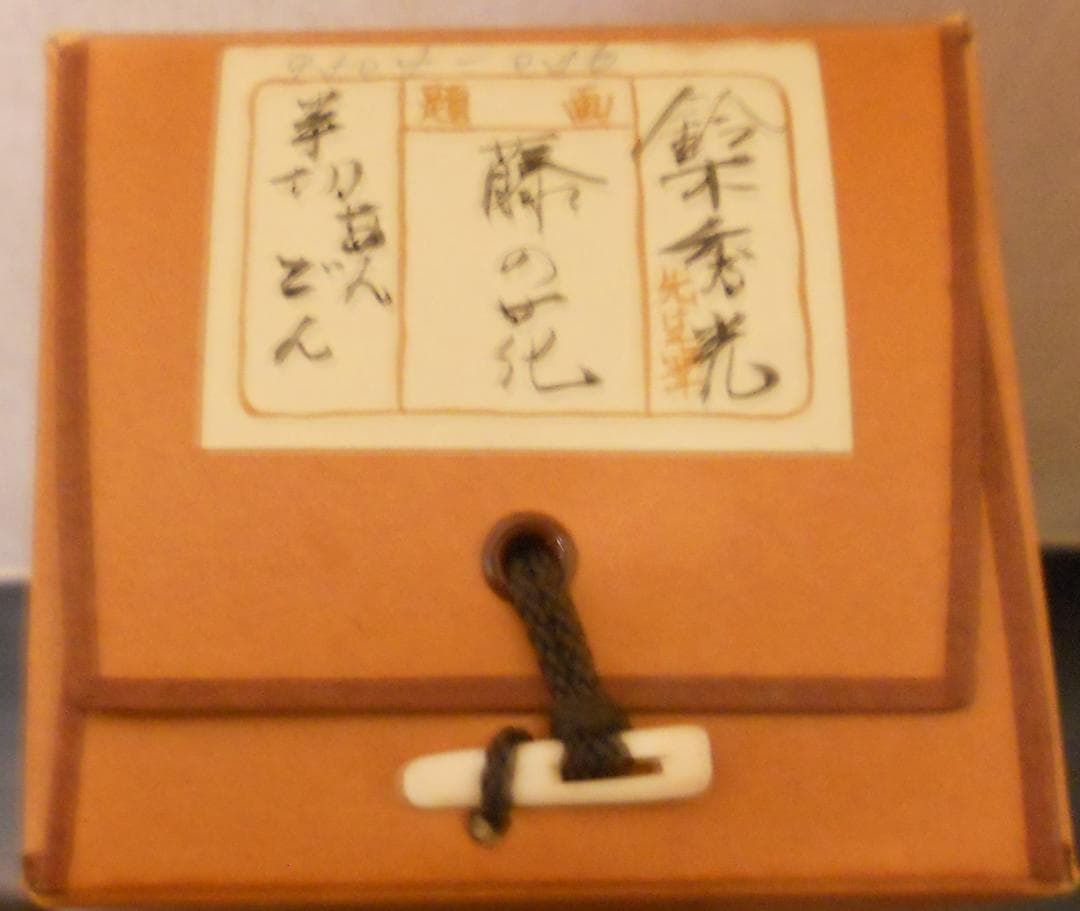 鈴木秀光
先生筆
画題
藤の花
半切あん
どん